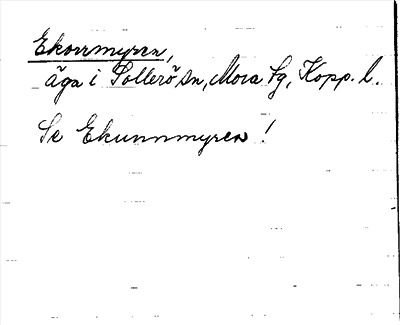 Ekorrmyren,
äga i Sollerö sn, Mora tg, Kopp. l.
Se Ekunnmyren!